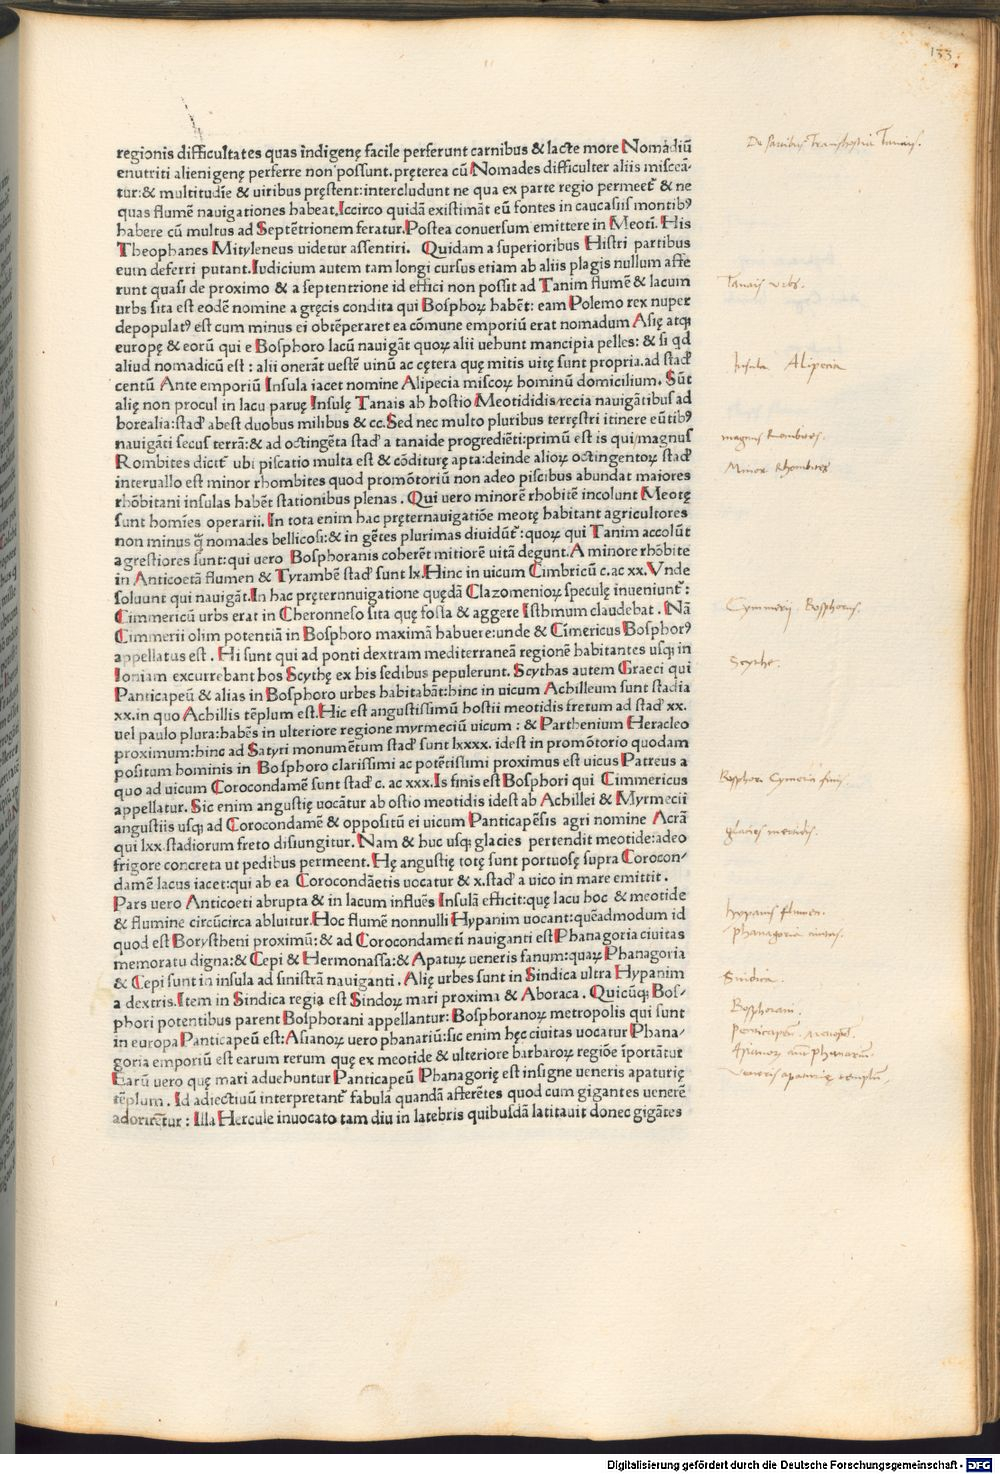 133
regionis difficultates quas indigenę facile perferunt carnibus & lacte more Nomadiũ
enutriti alienigenę perferre non possunt. pręterea cũ Nomades difficulter aliis misceã-
tur: & multitudĩe & uiribus pręstent: intercludunt ne qua ex parte regio permeet᷑ & ne
quas flumẽ nauigationes habeat. Iccirco quidã existimãt eũ fontes in caucasiis montibꝰ
habere cũ multus ad Septẽtrionem feratur. Postea conuersum emittere in Meoti. His
Theophanes Mityleneus uidetur assentiri. Quidam a superioribus Histri partibus
eum deferri putant. Iudicium autem tam longi cursus etiam ab aliis plagis nullum affe
runt quasi de proximo & a septentrione id effici non possit ad Tanim flumẽ & lacum
urbs sita est eodẽ nomine a gręcis condita qui Bosphoꝝ habẽt: eam Polemo rex nuper
depopulatꝰ est cum minus ei obtẽperaret ea cõmune emporiũ erat nomadum Asię atqꝫ
europę & eorũ qui e Bosphoro lacũ nauigãt quoꝝ alii uehunt mancipia pelles: & si qd
aliud nomadicũ est: alii onerãt uestẽ uinũ ac cętera quę mitis uitę sunt propria. ad stad᷑
centũ Ante emporiũ Insula iacet nomine Alipecia miscoꝝ hominũ domicilium. Sũt
alię non procul in lacu paruę Insulę Tanais ab hostio Meotididis recta nauigãtibus ad
borealia: stad᷑ abest duobus milibus & cc. Sed nec multo pluribus terręstri itinere eũtibꝰ
nauigãti secus terrã: & ad octingẽta stad᷑ a tanaide progrediẽti: primũ est is qui magnus
Rombites dicit᷑ ubi piscatio multa est & cõditurę apta: deinde alioꝝ octingentoꝝ stad᷑
interuallo est minor rhombites quod promõtoriũ non adeo piscibus abundat maiores
rhõbitani insulas habẽt stationibus plenas. Qui uero minorẽ rhobitẽ incolunt Meotę
sunt homĩes operarii. In tota enim hac pręternauigatiõe meotę habitant agricultores
non minus q̃ nomades bellicosi: & in gẽtes plurimas diuidũt᷑: quoꝝ qui Tanim accolũt
agrestiores sunt: qui uero Bosphoranis coherẽt mitiorẽ uitã degunt. A minore rhõbite
in Anticoetã flumen & Tyrambẽ stad᷑ sunt lx. Hinc in uicum Cimbricũ c. ac xx. Vnde
soluunt qui nauigãt. In hac pręternnuigatione quędã Clazomenioꝝ speculę inueniunt᷑:
Cimmericũ urbs erat in Cheronneso sita quę fossa & aggere Isthmum claudebat. Nã
Cimmerii olim potentiã in Bosphoro maximã habuere: unde & Cĩmericus Bosphorꝰ
appellatus est. Hi sunt qui ad ponti dextram mediterraneã regionẽ habitantes usqꝫ in
Ioniam excurrebant hos Scythę ex his sedibus pepulerunt. Scythas autem Graeci qui
Panticapeũ & alias in Bosphoro urbes habitabãt: hinc in uicum Achilleum sunt stadia
xx. in quo Achillis tẽplum est. Hic est angustissimũ hostii meotidis fretum ad stad᷑ xx.
uel paulo plura: habẽs in ulteriore regione myrmeciũ uicum: & Parthenium Heracleo
proximum: hinc ad Satyri monumẽtum stad᷑ sunt lxxxx. idest in promõtorio quodam
positum hominis in Bosphoro clarissimi ac potẽtissimi proximus est uicus Patreus a
quo ad uicum Corocondamẽ sunt stad᷑ c. ac xxx. Is finis est Bosphori qui Cimmericus
appellatur. Sic enim angustię uocãtur ab ostio meotidis idest ab Achillei & Myrmecii
angustiis usqꝫ ad Corocondamẽ & oppositũ ei uicum Panticapẽsis agri nomine Acrã
qui lxx. stadiorum freto disiungitur. Nam & huc usqꝫ glacies pertendit meotide: adeo
frigore concreta ut pedibus permeent. Hę angustię totę sunt portuosę supra Corocon-
damẽ lacus iacet: qui ab ea Corocondãetis uocatur & x. stad᷑ a uico in mare emittit.
Pars uero Anticoeti abrupta & in lacum influẽs Insulã efficit: quę lacu hoc & meotide
& flumine circũcirca abluitur. Hoc flumẽ nonnulli Hypanim uocant: quẽadmodum id
quod est Borystheni proximũ: & ad Corocondameti nauiganti est Phanagoria ciuitas
memoratu digna: & Cepi & Hermonassa: & Apatuꝝ ueneris fanum: quaꝝ Phanagoria
& Cepi sunt in insula ad sinistrã nauiganti. Alię urbes sunt in Sindica ultra Hypanim
a dextris. Item in Sindica regia est Sindoꝝ mari proxima & Aboraca. Quicũqꝫ Bos-
phori potentibus parent Bosphorani appellantur: Bosphoranoꝝ metropolis qui sunt
in europa Panticapeũ est: Asianoꝝ uero phanariũ: sic enim hęc ciuitas uocatur Phana-
goria emporiũ est earum rerum quę ex meotide & ulteriore barbaroꝝ regiõe ĩportãtur
Earũ uero quę mari aduehuntur Panticapeũ Phanagorię est insigne ueneris apaturię
tẽplum. Id adiectiuũ interpretant᷑ fabulã quandã afferẽtes quod cum gigantes uenerẽ
adorirẽtur: Illa Hercule inuocato tam diu in latebris quibusdã latitauit donec gigãtes
Tanais vrbs.
Insula Alipecia
magnus Rombites.
Minor Rhombites
Cymmerij Bosphorus.
Scythe.
Bosphori Cymerii finis.
glacies meotidis.
hypanis flumen.
Phanagoria ciuitas.
Sindica.
Bosphorani.
Veneris apaturię templũ.
Digitalisierung gefördert durch die Deutsche Forschungsgemeinschaft - DFG